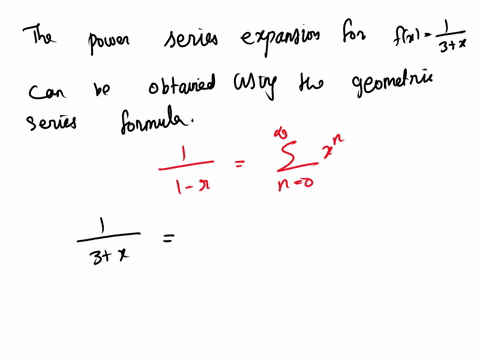 The power series expansion for f(x) = 1/(3+x)
can be obtained using the geometric
series formula.
1/(1-x) = ∞∑n=0 x^n
1/(3+x) =